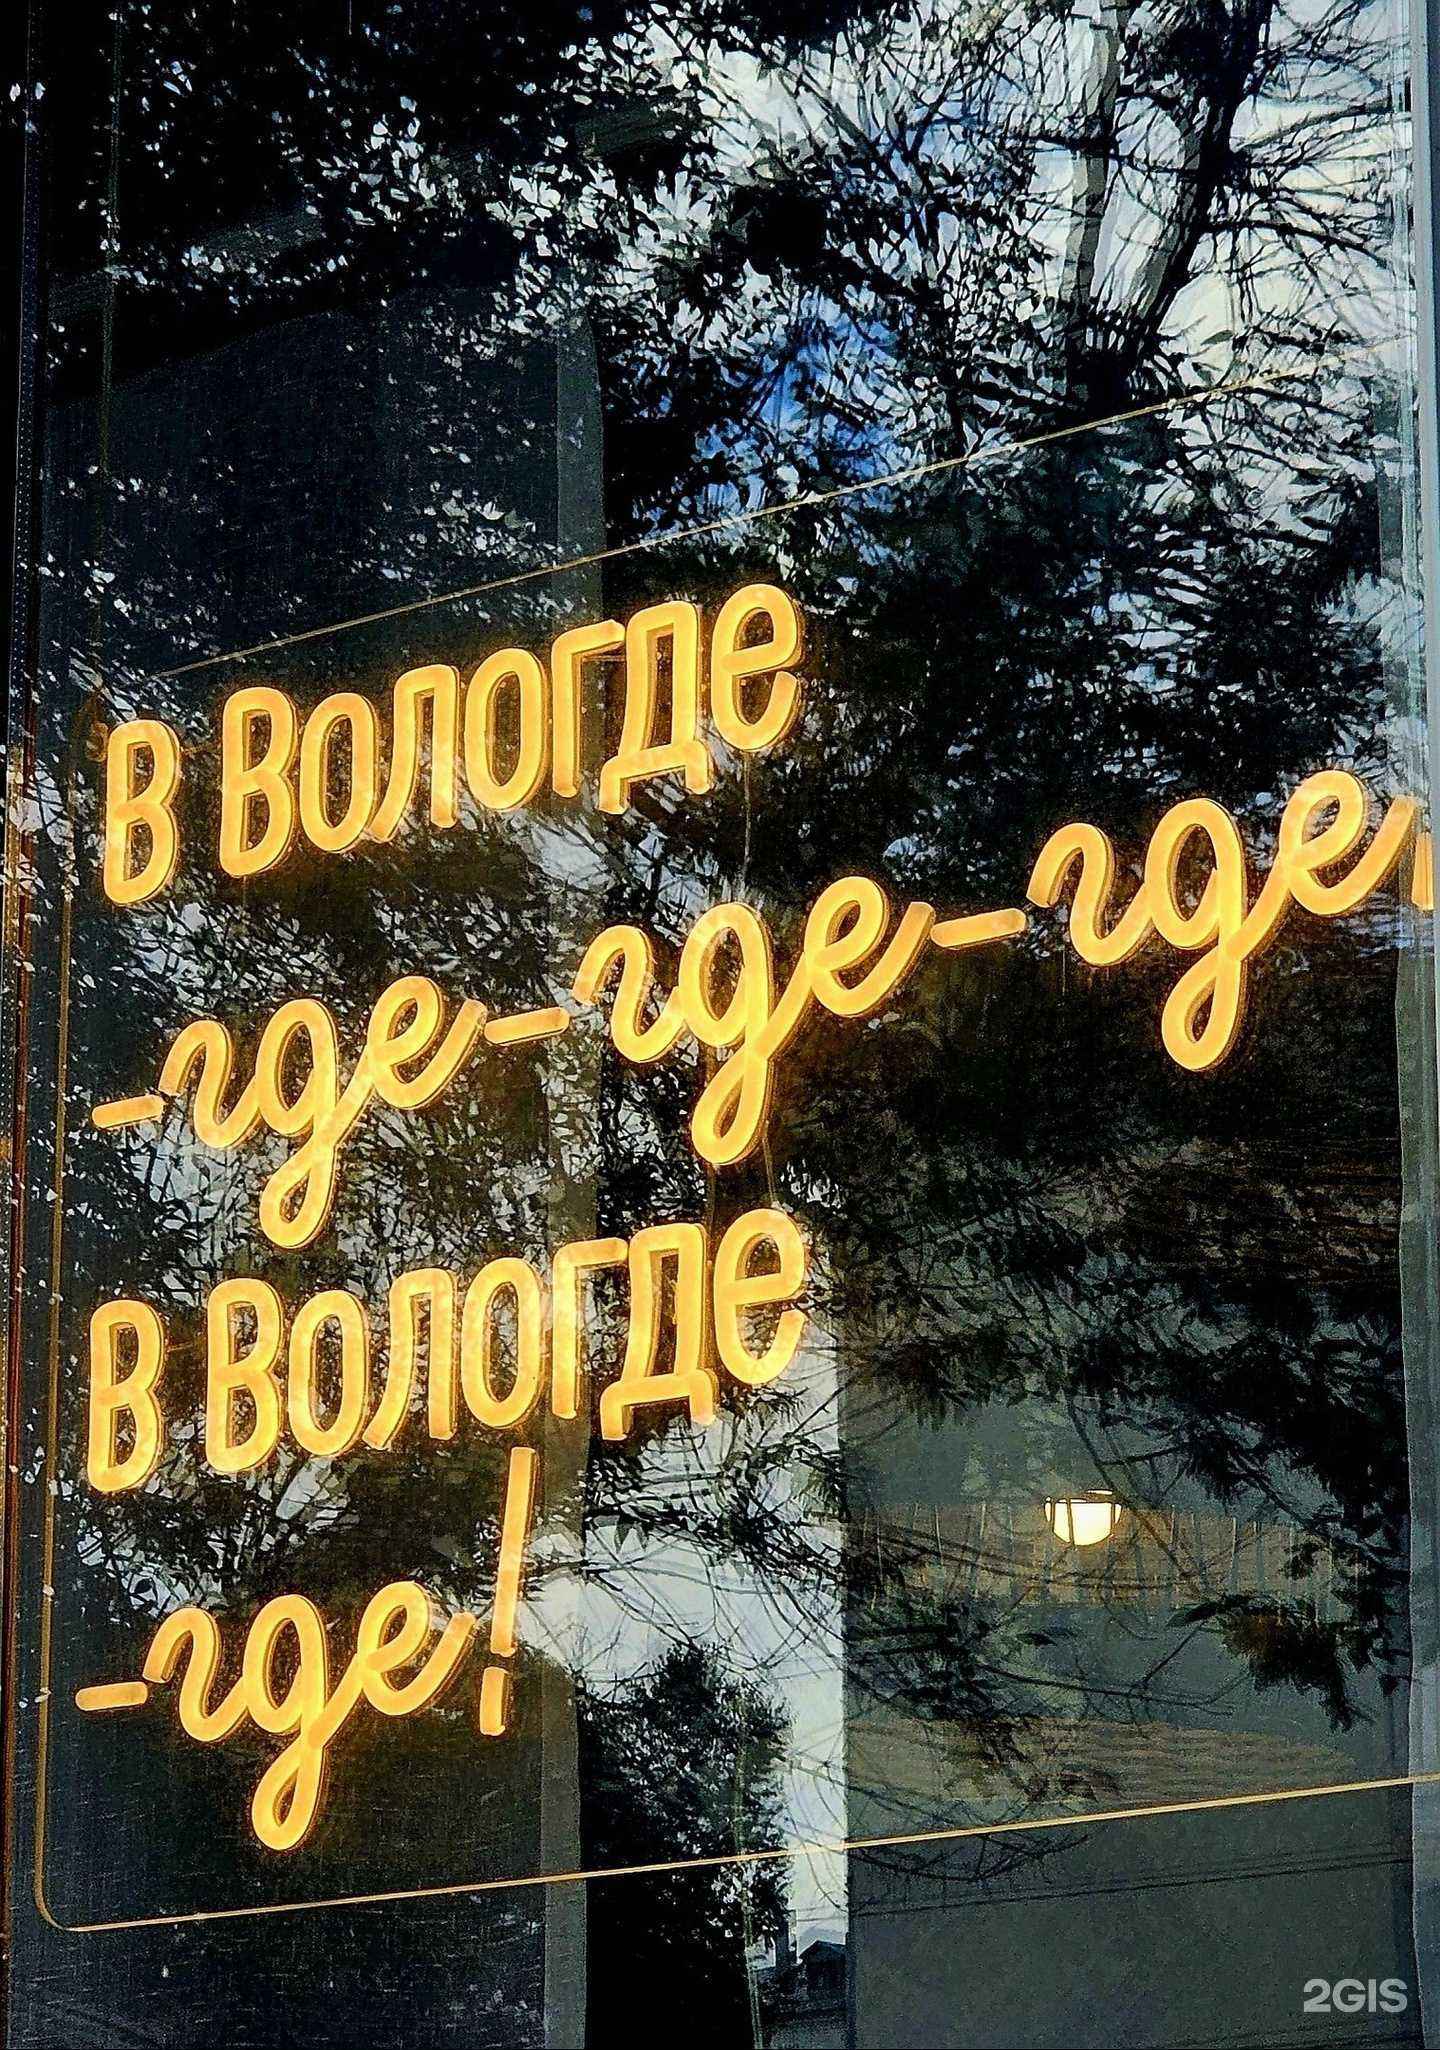 в Вологде
-где-где-где,
в Вологде
-где!
2GIS